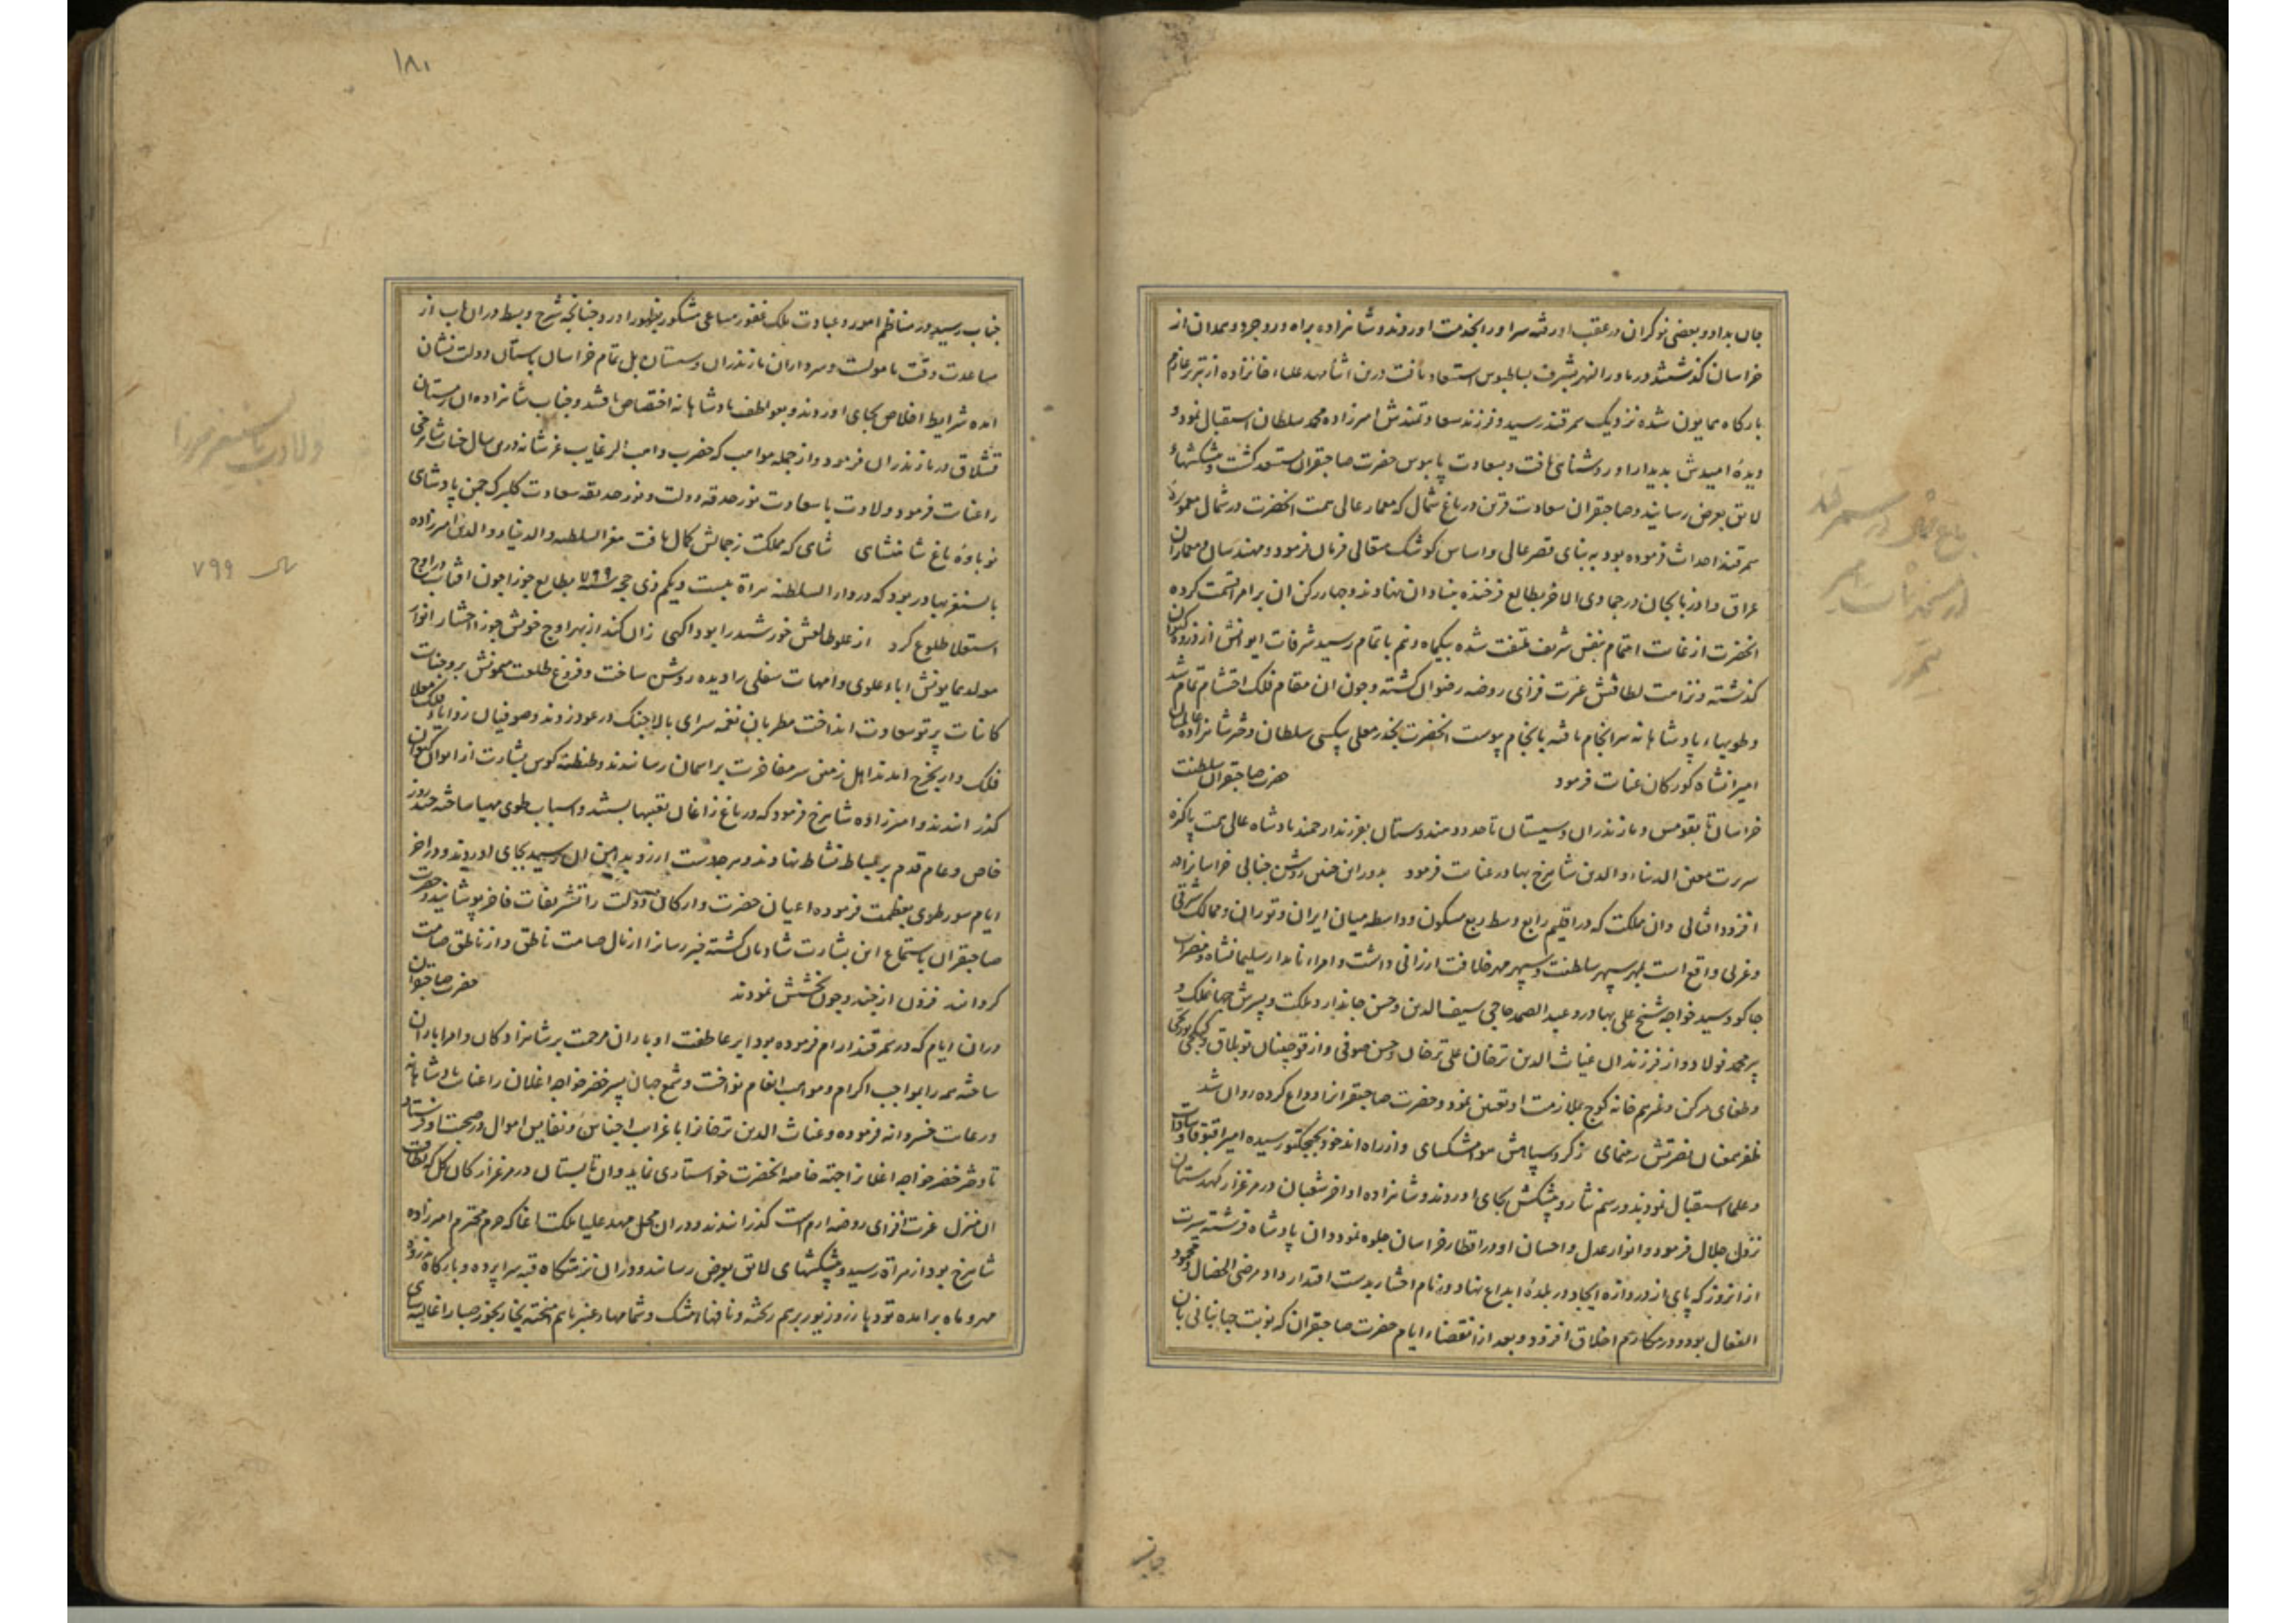 جان بداد و بعضی نوکران در عقب او رفته سر او را بخدمت اوردند و شاهزاده براه وروجرد و همدان از
خراسان کذشته در ماورا النهر بشرف بساطبوس استسعاد یافت درین اثنا مهد علیا خانزاده از تبریز عازم
بارکاه همایون شده نزدیک سمرقند رسید و فرزند سعادتمندش امیرزاده محمد سلطان استقبال نمود و
دیدهٔ امیدش بدیدار او روشنای یافت و بسعادت پابوس حضرت صاحبقران مستسعد کشت و پیشکشهاء
لایق بعرض رسانید و صاحبقران سعادت قرین در باغ شمال که معمار عالی همت انحضرت در شمال معمورهٔ
سمرقند احداث فرموده بود به بنای قصر عالی و اساس کوشک متعالی فرمان فرمود و مهندسان و معماران
عراق و اذربایجان در جمادی الاخر بطالع فرخنده بنیاد ان نهادند و چهار رکن ان بر امرا قسمت کرده
انحضرت از غایت اهتمام بنفس شریف ملتفت شده بیکماه و نیم باتمام رسید شرفات ایوانش از ذروهٔ کیوان
کذشته و نزاهت لطافتش غیرت فزای روضه رضوان کشته و چون ان مقام فلک احتشام تمام شد
و طویهاء پادشاهانه سرانجام یافته بانجام پیوست انحضرت بخدر معلی بیکسی سلطان دختر شاهزاده عالمیان
امیرانشاه کورکان عنایت فرمود حضرت صاحبقران سلطنت
خراسان تا بقومس و مازندران و سیستان تا حدود هندوستان بفرزند ارجمند پادشاه عالی همت پاکیزه
سیرت معین الدنیاء و الدین شاهرخ بهادر عنایت فرمود بدوران چنین روشن جنابی خراسانراد
افزود اقبالی وان مملکت که در اقلیم رابع وسط ربع مسکون و واسطه میان ایران و توران و ممالک شرقی
و غربی واقع است بمهر سپهر سلطنت و سپهر مهر خلافت ارزانی داشت و امراء نامدار سلیمانشاه و مضراب
جاکو و سید خواجه شیخ علی بهادر و عبد الصمد حاجی سیف الدین و حسن جاندار و ملکت و پسرش جهانملک و
پیر محمد فولاد و از فرزندان غیاث الدین ترخان علی ترخان و حسن صوفی و از قوچینان توبلاق
و طغای مرکن و غیرهم خانه کوچ بملازمت او تعیین نمود و حضرت صاحبقرانرا وداع کرده روان شد
ظفر همعنان نصرتش رهنمای ز کرد سپاهش هوا مشکسای و از راه اندخود بحیجکتو رسیده امیر اقبوقا و سادات
و علما استقبال نمودند و رسم نثار و پیشکش بجای اوردند و شاهزاده اواخر شعبان در مرغزار کهدستان
نزول جلال فرمود و انوار عدل و احسان او در اقطار خراسان جلوه نمود و ان پادشاه فرشته سیرت
از انروز که پای از دروازه ایجاد در بلدهٔ ابداع نهاد و زمام اختیار بدست اقتدار داد مرضی الخصال و محمود
الفعال بود و در مکارم اخلاق افزود و بعد از انقضاء ایام حضرت صاحبقران که نوبت جهانبانی بان
جناب
باغ شمال در سمرقند
تیمور
۱۸۰
جناب رسید در مناظم امور و عبادت ملک غفور مساعی مشکور بظهور اورد چنانچه شرح و بسط در ان باب از
مساعدت وقت مامولست و سرداران مازندران و سیستان بل تمام خراسان باستان دولت نشان
امده شرایط اخلاص بجای اوردند و بعواطف پادشاهانه اختصاص یافتند و جناب شاهزاده ان زمستان
قشلاق در مازندران فرمود و از جمله مواهب که حضرت واهب الرغایب عز شانه درین سال جناب شاهرخی
را عنایت فرمود ولادت باسعادت نور حدقه دولت و نور حدیقه سعادت کلبرک چمن پادشاهی
نوباوهٔ باغ شاهنشاهی شاهی که مملکت ز جمالش کمال یافت معز السلطنه و الدنیا و الدین امیرزاده
بایسنغر بهادر بود که در دار السلطنه هراة بیست و یکم ذی حجه سنه ۷۹۹ بطالع جوزا چون افتاب در اوج
استعلا طلوع کرد از علو طالعش خورشید را بود اکهی زان کند از بهر اوج خویش جوزا اختیار انوار
مولد همایونش اباء علوی و امهات سفلی را دیده روشن ساخت و فروغ طلعت میمونش بر وجنات
کاینات پرتو سعادت انداخت مطربان نغمه سرای بالا چنک در عود زدند و صوفیان زوایاء فلک معلا
فلک وار بچرخ امدند اهل زمین سر مفاخرت بر اسمان رسانیدند و طنطنه کوس بشارت از ایوان کیوان
کذرانیدند و امیرزاده شاهرخ فرمود که در باغ زاغان تعبیها بستند و اسباب طوی مهیا ساخته چند روز
خاص و عام قدم بر بساط نشاط نهادند و هر چه دست ارزو بدامن ان رسید بجای اوردند و در اخر
ایام سور طوی بعظمت فرموده اعیان حضرت و ارکان دولت را تشریفات فاخر پوشانید و حضرت
صاحبقران باستماع این بشارت شادمان کشته خبر رسانرا از مال صامت ناطق و از ناطق صامت
کردانید فزون از چند و چون بخشش نمودند حضرت صاحبقران
در ان ایام که در سمرقند ارام فرموده بود ابر عاطفت او باران مرحمت بر شاهزادکان و امرا باران
ساخته همه را بمواجب اکرام و مواهب انعام نواخت و شمع جهان پسر خضر خواجه اغلان را عنایت پادشاهانه
و رعایت خسروانه فرموده و غیاث الدین ترخانرا با غرایب اجناس و نفایس اموال در صحبت او فرستاد
تا دختر خضر خواجه اغلانرا جهته خاصه انحضرت خواستاری نماید وان تابستان در مرغزار کان کل که
ان منزل غیرت افزای روضه ارم است کذرانیدند و در ان محل مهد علیا ملکت اغا که حرم محترم امیرزاده
شاهرخ بود از هراة رسید و پیشکشهای لایق بعرض رسانید و در ان نزهتکاه قبه سراپرده و بارکاه بذروهٔ
مهر و ماه برامده تودها زر و زیور برهم ریخته و نافها مشک و شمامها عنبر باهم بیخته بخار بخور صبا را غالیه سای
ولادت بایسنغر میرزا
سال ۷۹۹